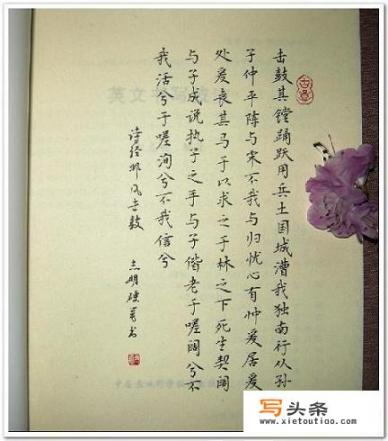 击鼓其镗踊跃用兵土国城漕我独南行从孙
子仲平陈与宋不我与归忧心有忡爰居爰
处爰丧其马于以求之于林之下死生契阔
与子成说执子之手与子偕老于嗟阔兮不
我活兮于嗟洵兮不我信兮
诗经邶风击鼓
志明硬笔书
英文书写
写头条
www.xietoutiao.com